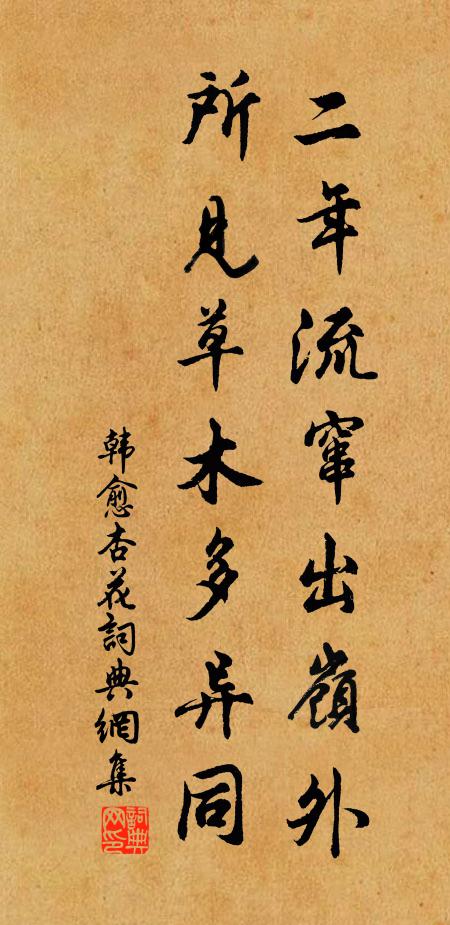 二年流窜出嶺外
所見草木多异同
韩愈杏花詞典網集
詞典网印